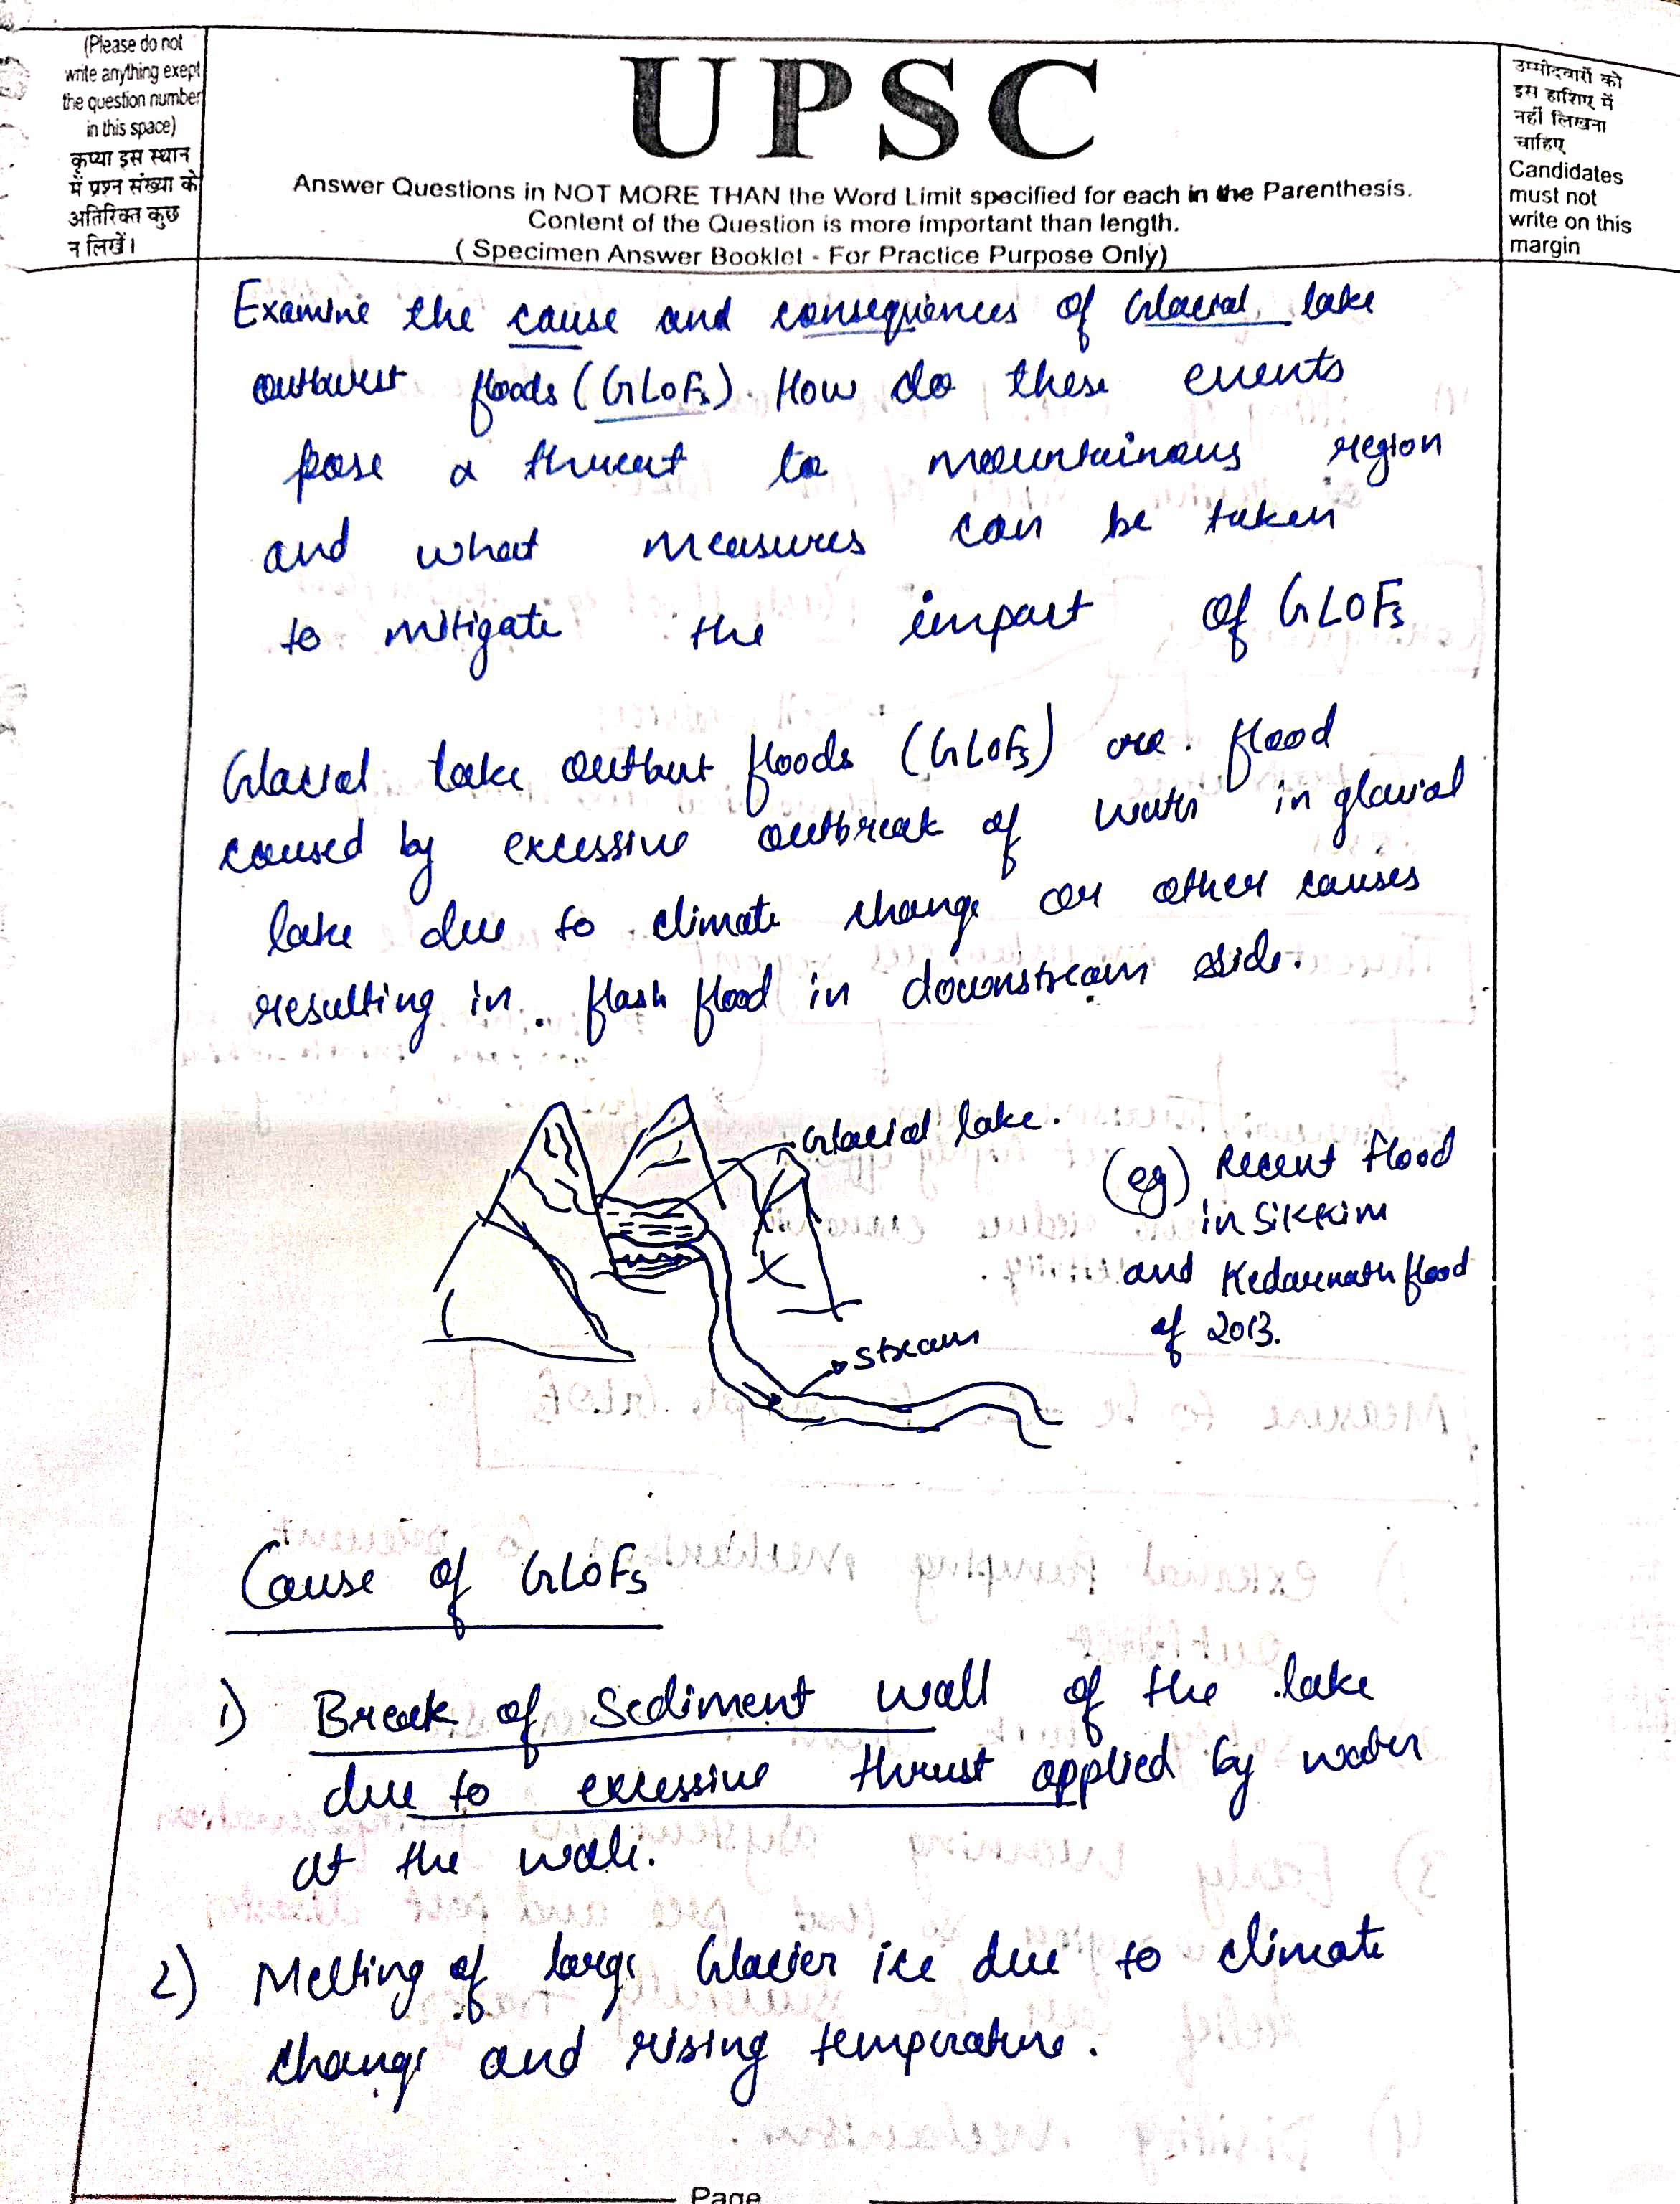 (Please do not
write anything exept
the question number
in this space)
कृप्या इस स्थान
में प्रश्न संख्या के
अतिरिक्त कुछ
न लिखें।
UPSC
Answer Questions in NOT MORE THAN the Word Limit specified for each in the Parenthesis.
Content of the Question is more important than length.
( Specimen Answer Booklet - For Practice Purpose Only)
उम्मीदवारों को
इस हाशिए में
नहीं लिखना
चाहिए
Candidates
must not
write on this
margin
Examine the cause and consequences of Glacial lake
outburst floods (GLOFs). How do these events
pose a threat to mountainous region
and what measures can be taken
to mitigate the impact of GLOFs
Glacial lake outburt floods (GLOFs) are flood
caused by excessive outbreak of water in glacial
lake due to climate change or other causes
resulting in flash flood in downstream side.
Glacial lake.
(eg) Recent flood
in Sikkim
and Kedarnath flood
of 2013.
stream
Cause of GLOFs
1) Break of Sediment wall of the lake
due to excessive thrust applied by water
at the walls.
2) Melting of large Glacier ice due to climate
change and rising temperature.
Page